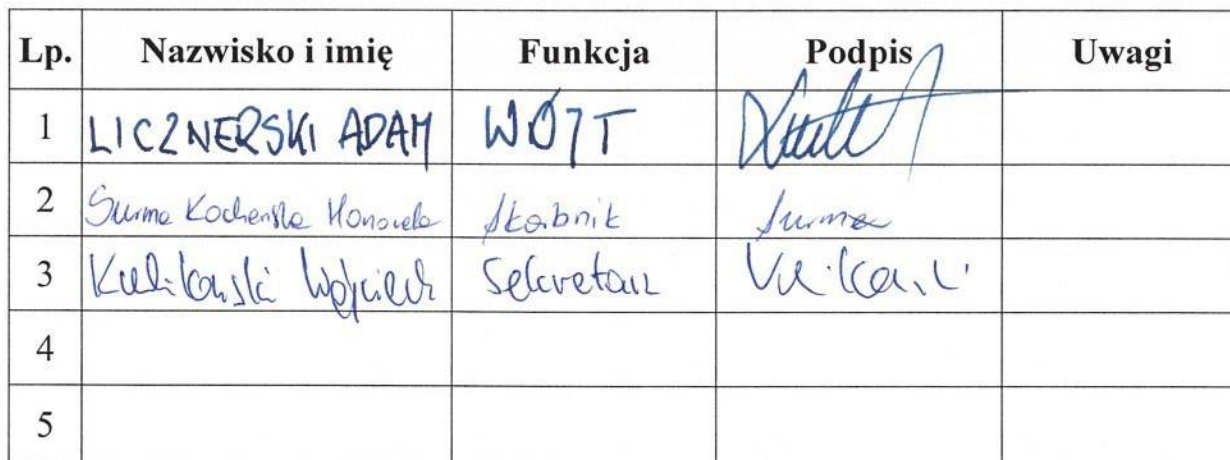 Lp. Nazwisko i imię Funkcja Podpis Uwagi
1 LICZNERSKI ADAM WÓJT
2 Surma Skarbnik Surma
3 Kulikowski Wojciech Sekretarz
4
5